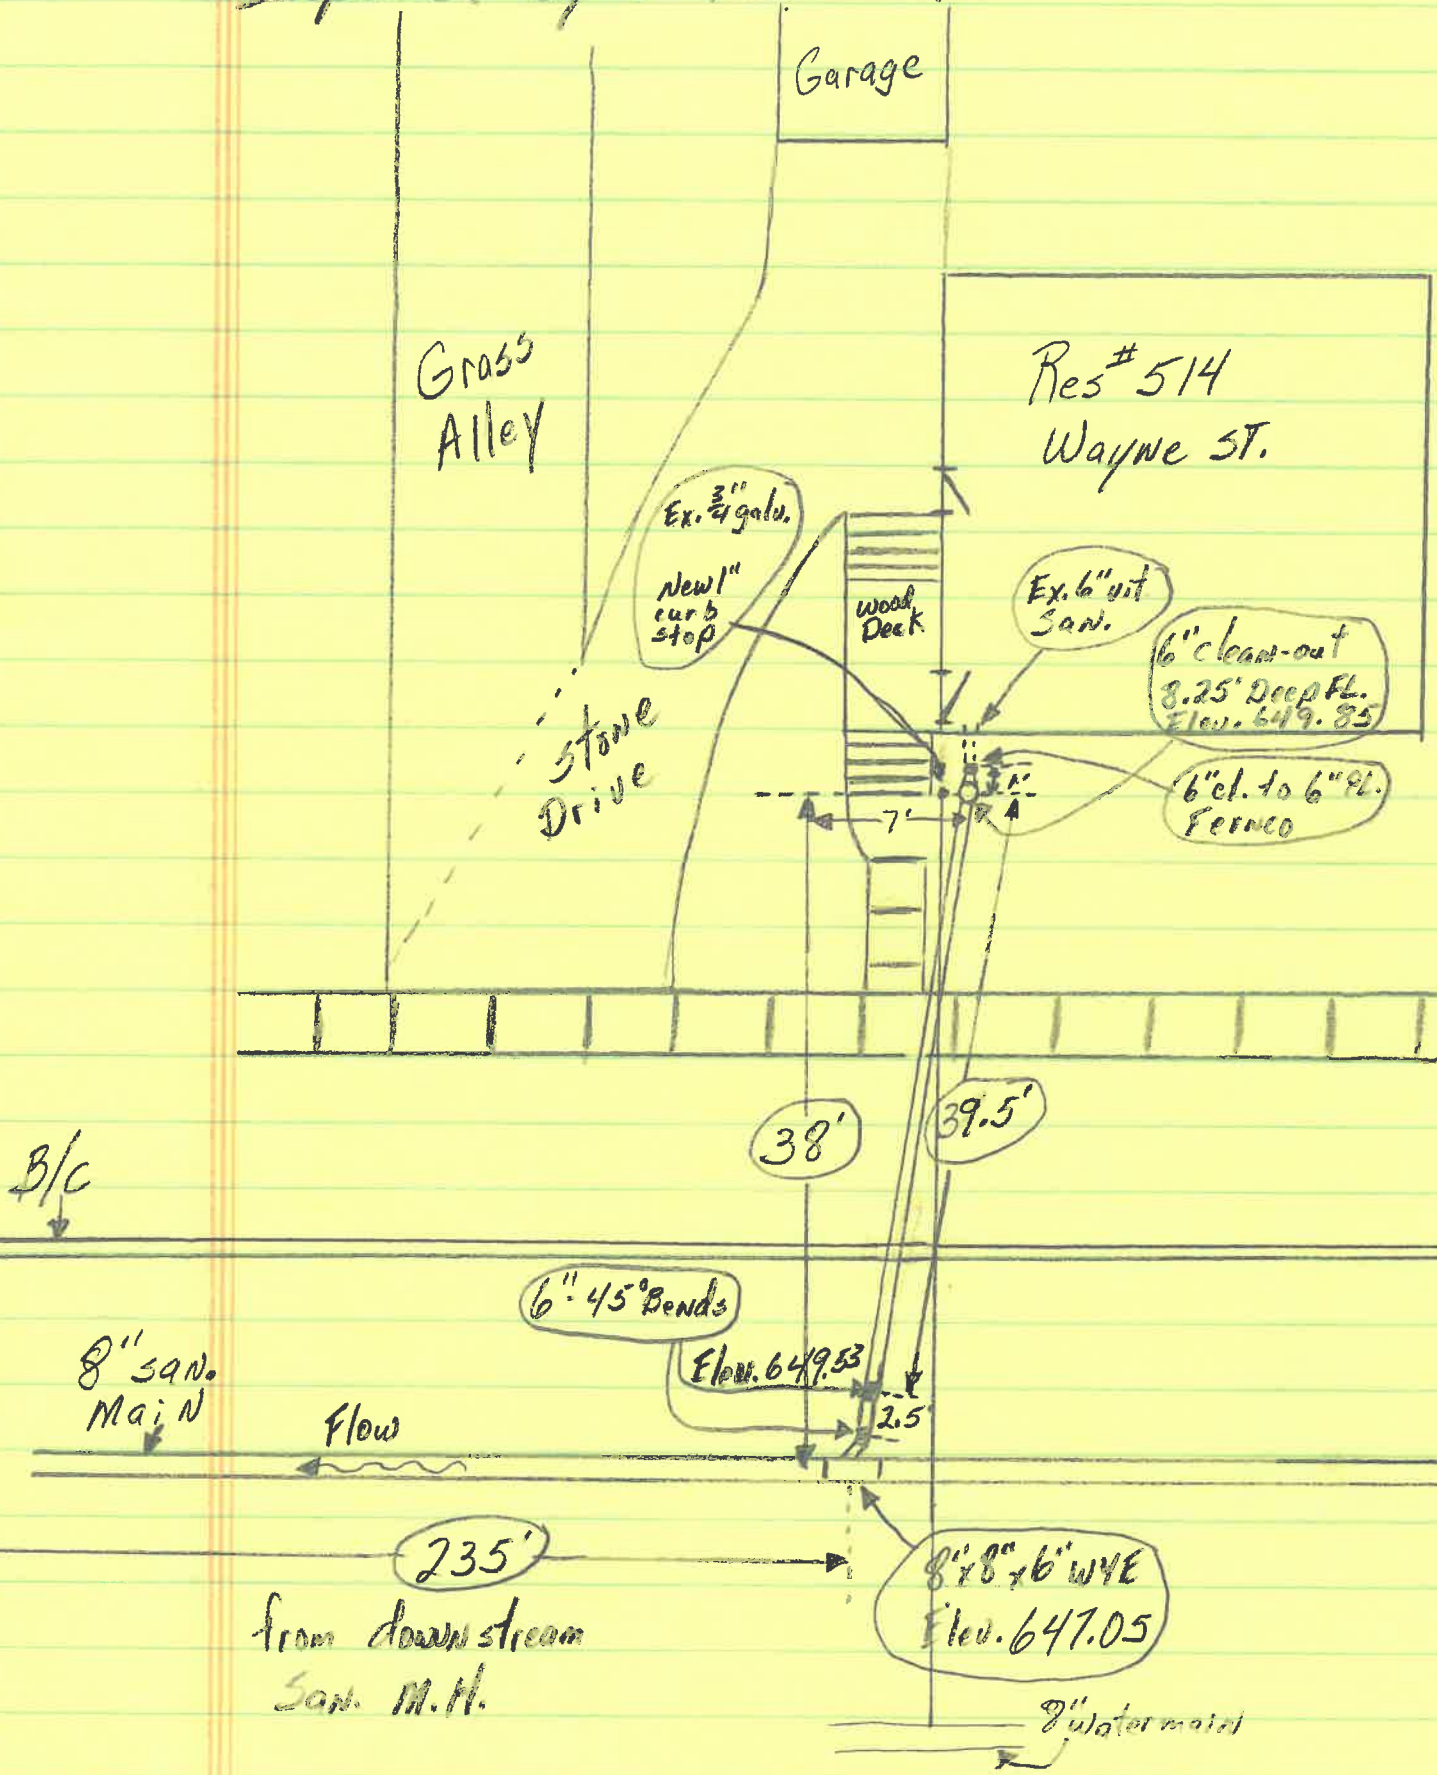 Garage
Grass
Alley
Res # 514
Wayne ST.
Ex. 3/4" galv.
New 1"
curb
stop
Wood
Deck
Ex. 6" vit
San.
6" clean-out
8.25' Deep FL.
Elev. 649.85
6" cl. to 6" PL.
Fernco
1'
7'
Stone
Drive
38'
39.5'
B/C
6"-45° Bends
Elev. 649.53
2.5'
8" san.
Main
Flow
235'
from downstream
San. M.H.
8"x8"x6" WYE
Elev. 647.05
8" Watermain